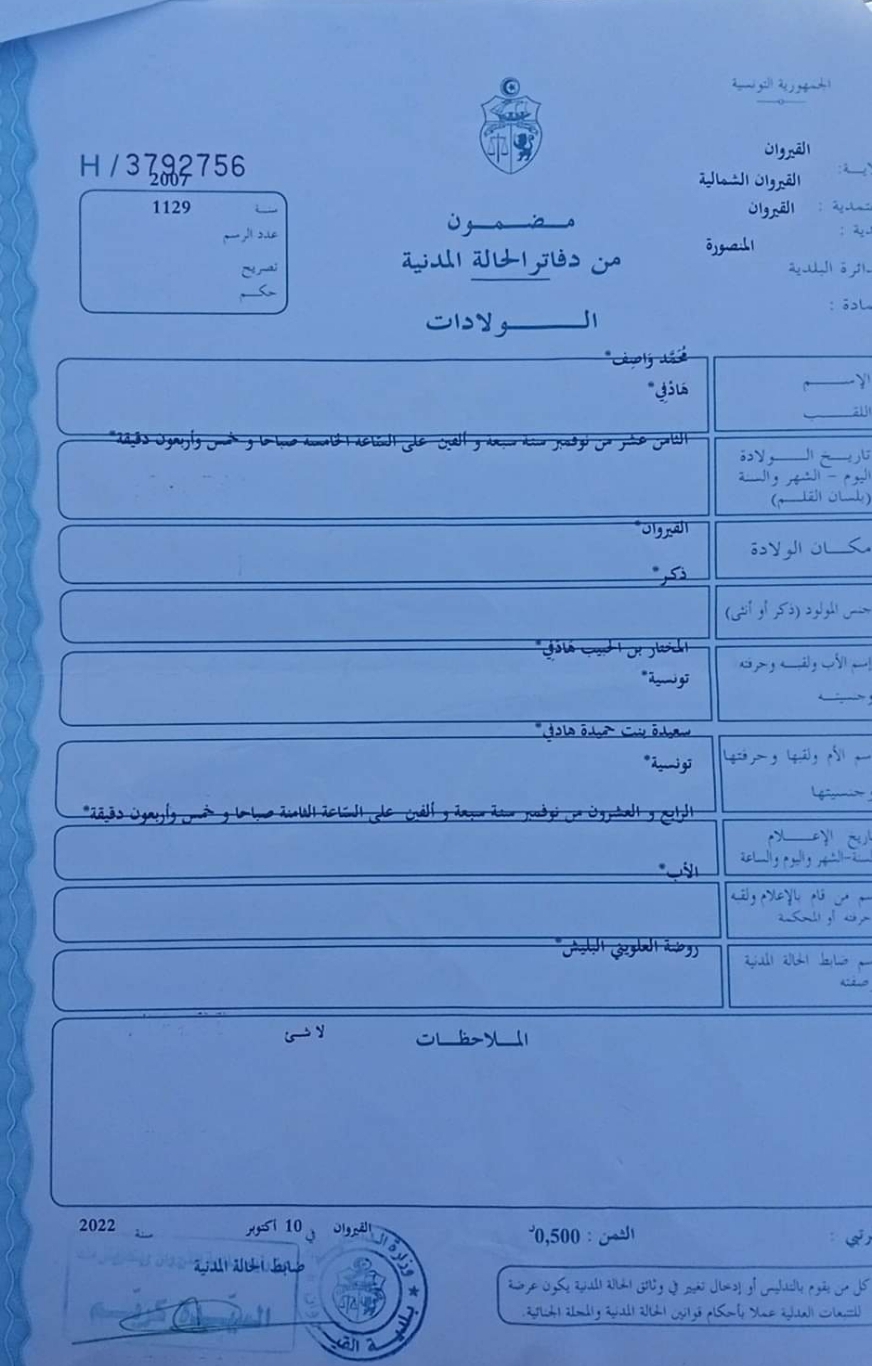 الجمهورية التونسية
القيروان
القيروان الشمالية
القيروان
المنصورة
دائرة البلدية
H / 3792756
2007
سنة 1129
عدد الرسم
تصريح
حكم
مضمون
من دفاتر الحالة المدنية
الولادات
مُحَمَّد وَاصِف*
الإسم
هَاذْفِي*
اللقب
الثامن عشر من نوفمبر سنة سبعة و ألفين على الساعة الخامسة صباحا و خمس وأربعون دقيقة*
تاريخ الولادة
اليوم – الشهر والسنة
(بلسان القلم)
القيروان*
مكان الولادة
ذكر*
جنس المولود (ذكر أو أنثى)
المختار بن الحبيب هَاذْفِي*
إسم الأب ولقبه وحرفته
تونسية*
وجنسيته
سعيدة بنت حميدة هاذفي*
سم الأم ولقبها وحرفتها
تونسية*
وجنسيتها
الرابع و العشرون من نوفمبر سنة سبعة و ألفين على السّاعة الثامنة صباحا و خمس وأربعون دقيقة*
اريخ الإعلام
لسنة-الشهر واليوم والساعة
الأب*
سم من قام بالإعلام ولقبه
حرفته أو المحكمة
روضة العلويني البليش*
سم ضابط الحالة المدنية
صفته
الملاحظات
لا شئ
القيروان في 10 أكتوبر سنة 2022
الثمن : 0,500د
ضابط الحالة المدنية
كل من يقوم بالتدليس أو إدخال تغيير في وثائق الحالة المدنية يكون عرضة
للتبعات العدلية عملا بأحكام قوانين الحالة المدنية والمجلة الجنائية.